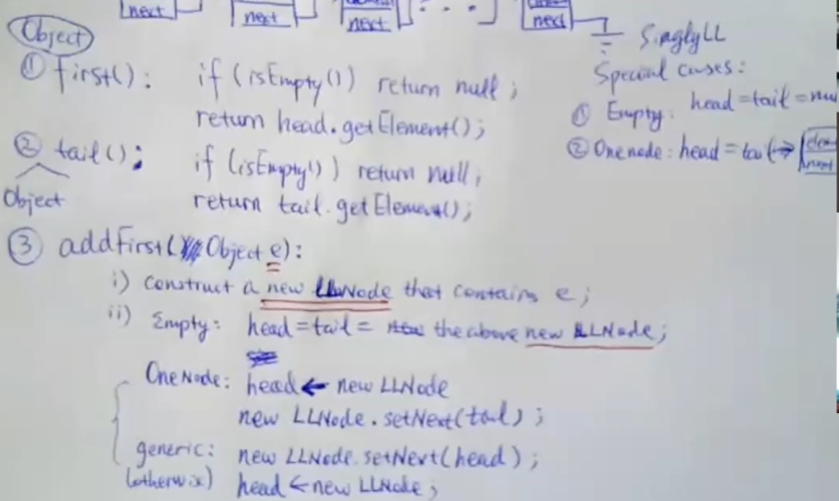 next next next : . . next
Object
SinglyLL
Special cases:
① first(): if (isEmpty()) return null;
return head.getElement();
① Empty: head=tail=nu
② One node: head=tail→
next
② tail(): if (isEmpty()) return null;
Object return tail.getElement();
③ addFirst( Object e):
i) construct a new LLNode that contains e;
ii) Empty: head=tail= the above new LLNode;
One Node: head ← new LLNode
new LLNode.setNext(tail);
generic: new LLNode.setNext(head);
(otherwise) head ← new LLNode;